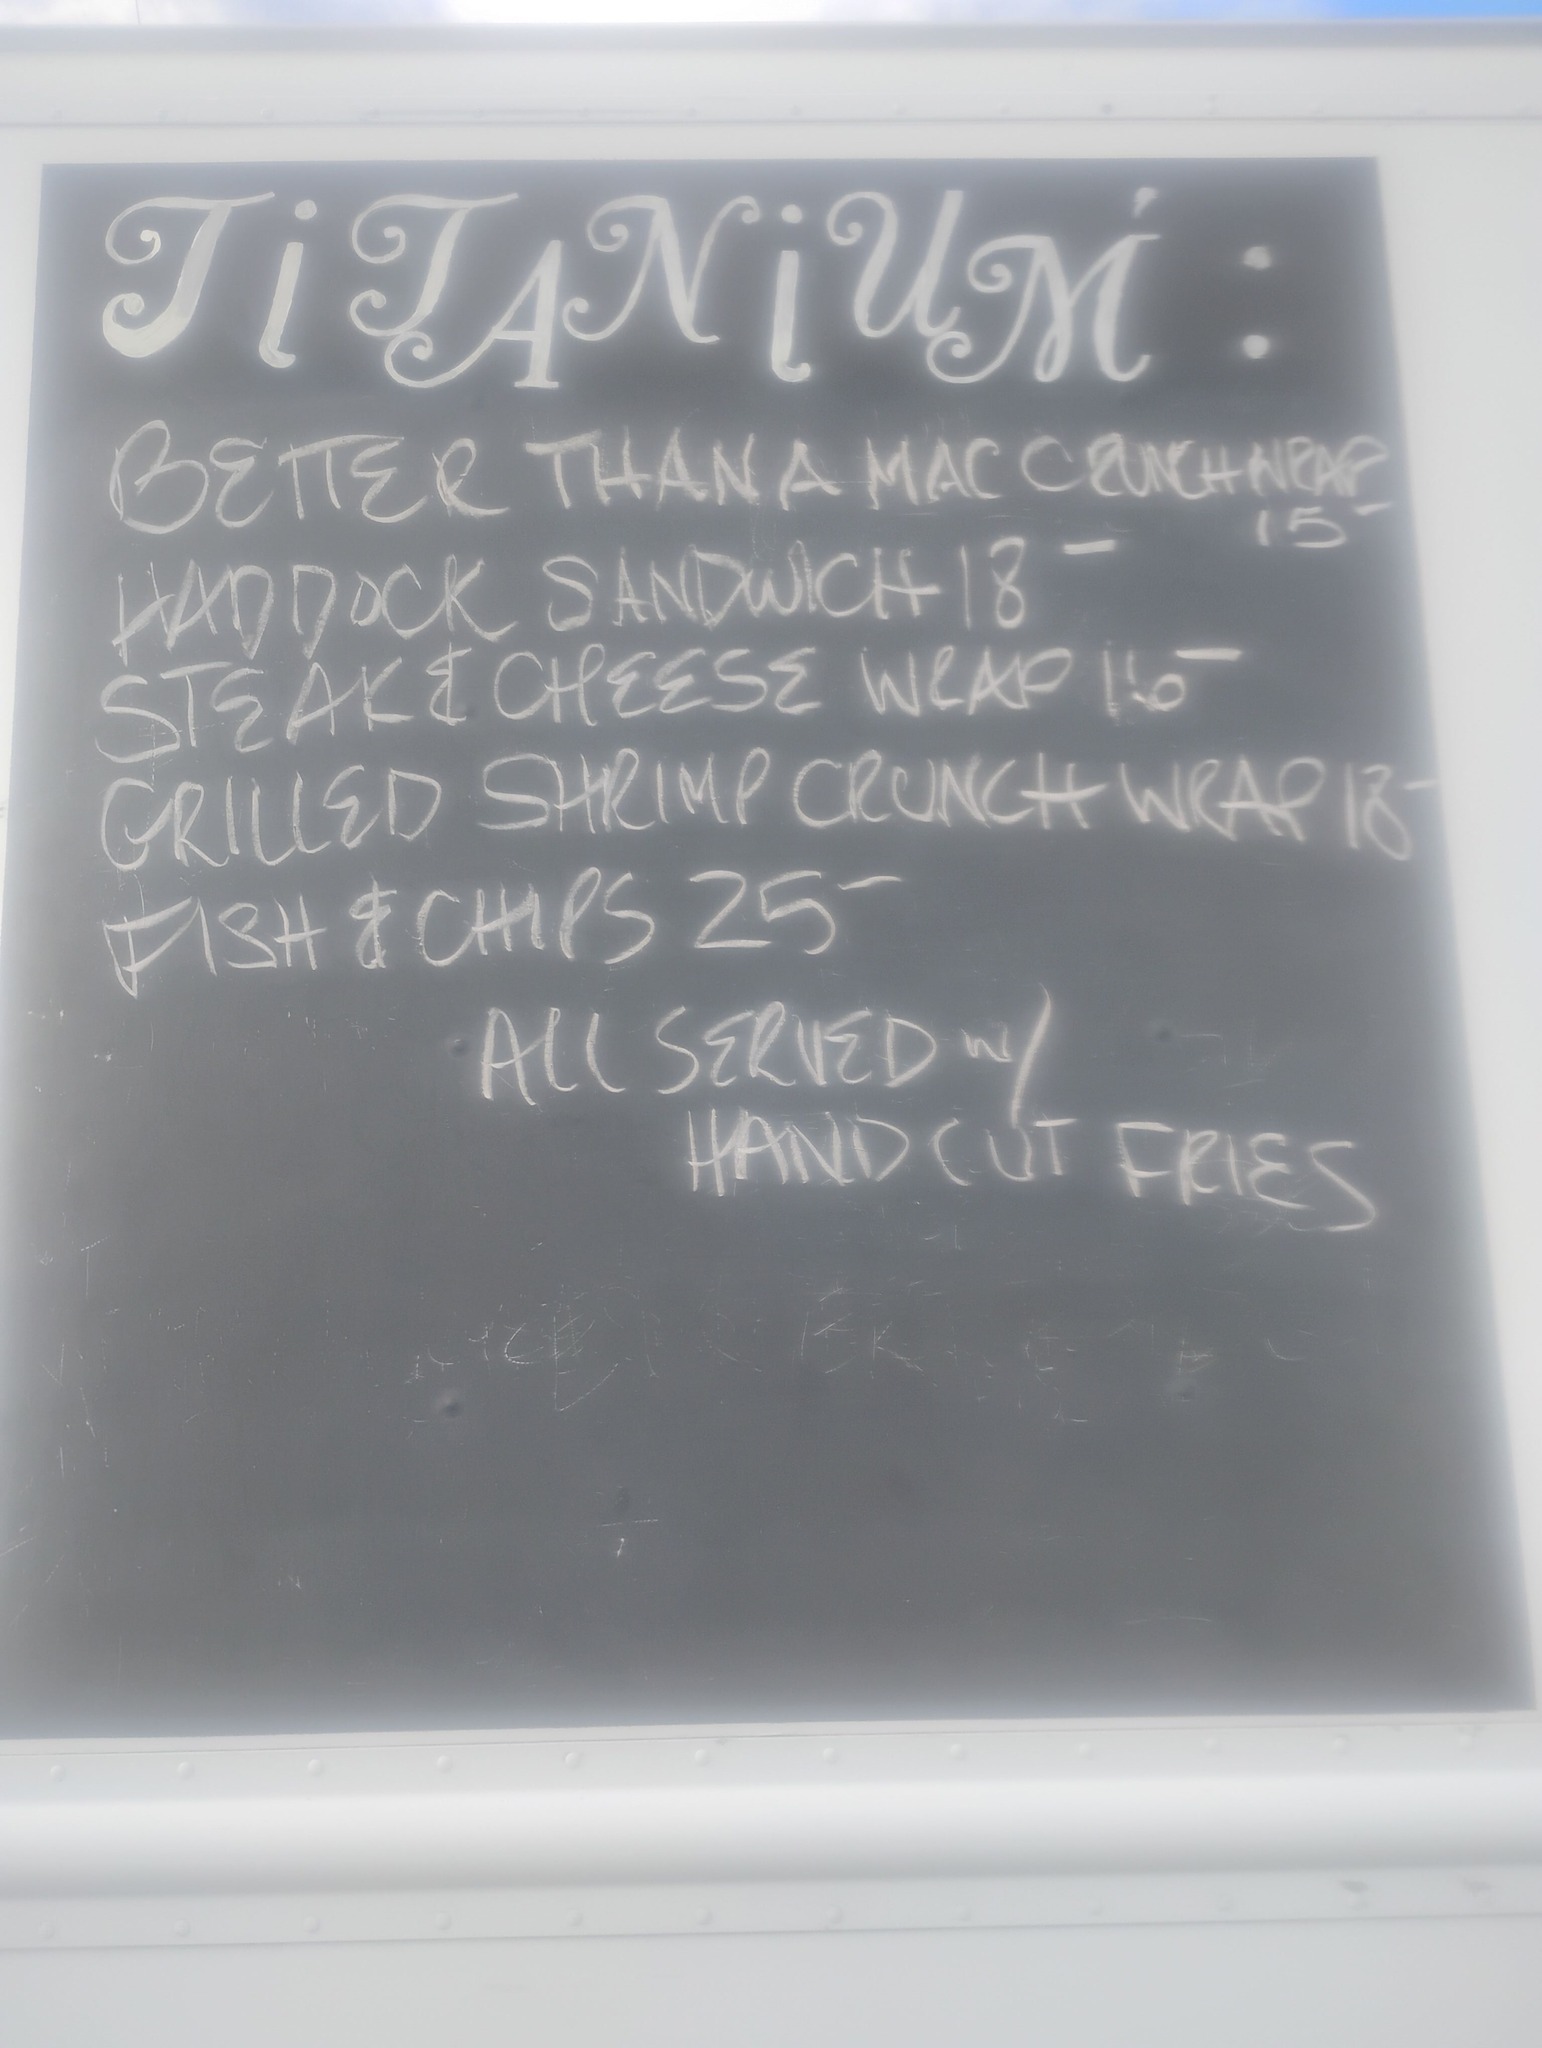 TiTANiUM:
BETTER THAN A MAC CRUNCHWRAP
15-
HADDOCK SANDWICH 18-
STEAK & CHEESE WRAP 16-
GRILLED SHRIMP CRUNCH WRAP 18-
FISH & CHIPS 25-
ALL SERVED w/
HAND CUT FRIES